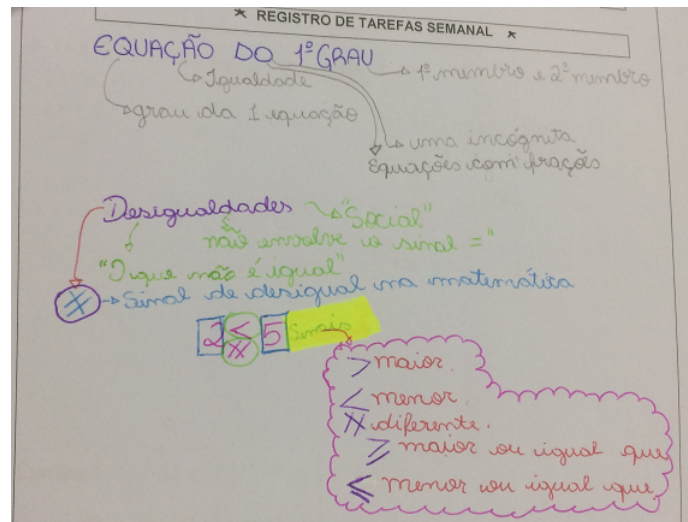 * REGISTRO DE TAREFAS SEMANAL *
EQUAÇÃO DO 1º GRAU → 1º membro e 2º membro
→ Igualdade
→ grau da 1 equação
→ uma incógnita
Equações com frações
Desigualdades → "Social"
não envolve o sinal ="
"O que não é igual"
≠ → Sinal de desigual na matemática
2 < 5 sinais
≠
> maior.
< menor.
≠ diferente.
≥ maior ou igual que
≤ menor ou igual que